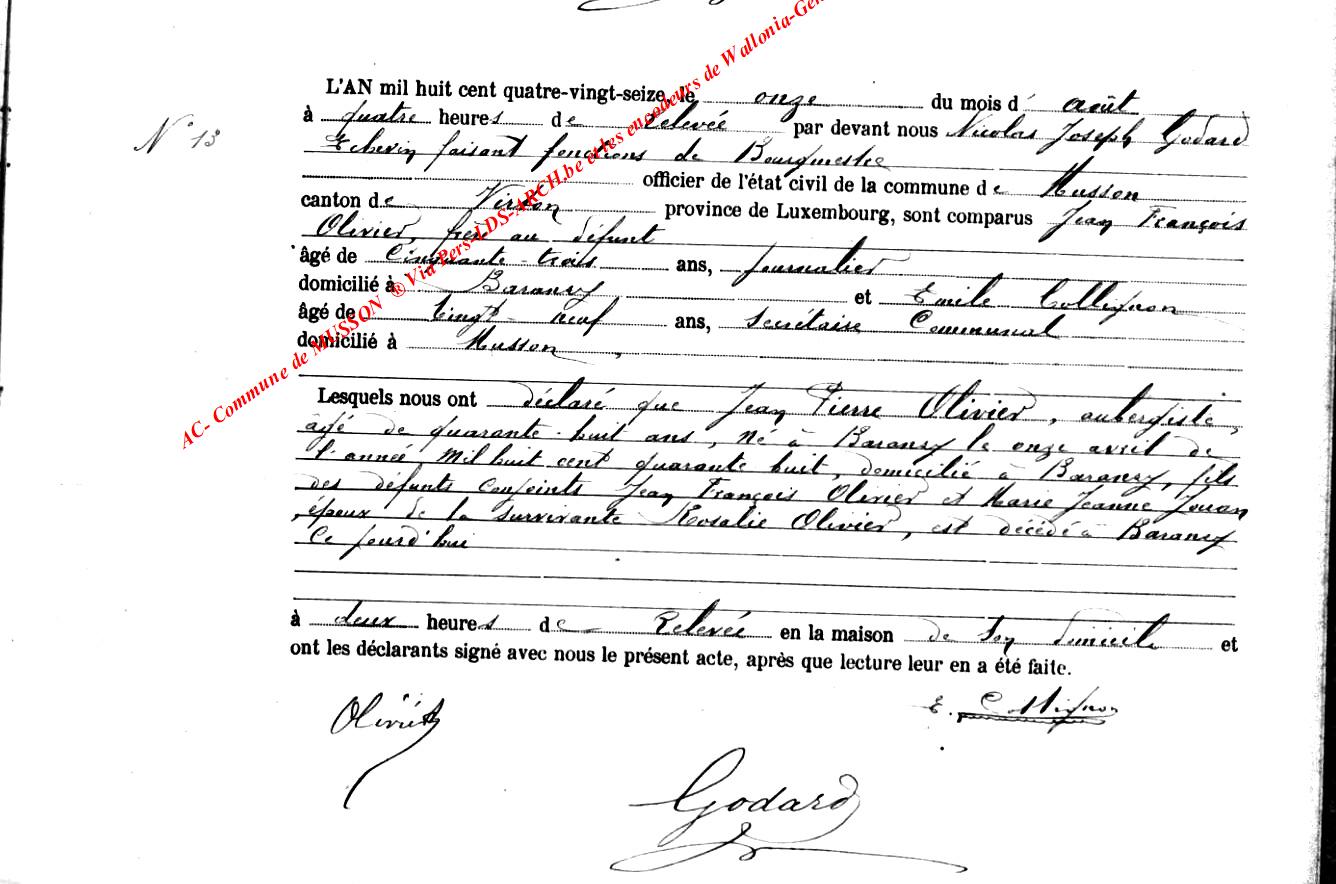 AC- Commune de MUSSON ® Via Pers-LDS-ARCH.be et les encodeurs de Wallonia-Gen
N° 13
L'AN mil huit cent quatre-vingt-seize, le onze du mois d' août
à quatre heures de relevée par devant nous Nicolas Joseph Godard
Echevin faisant fonctions de Bourgmestre
officier de l'état civil de la commune de Musson
canton de Virton province de Luxembourg, sont comparus Jean François
Olivier, frère au défunt
âgé de Cinquante-trois ans, journalier
domicilié à Baranzy et Emile Collignon
âgé de vingt-neuf ans, Secrétaire Communal
domicilié à Musson,
Lesquels nous ont déclaré que Jean Pierre Olivier, aubergiste,
âgé de quarante-huit ans, né à Baranzy le onze avril de
l'année mil huit cent quarante huit, domicilié à Baranzy, fils
des défunts conjoints Jean François Olivier et Marie Jeanne Jouan
époux de la survivante Rosalie Olivier, est décédé à Baranzy
Ce jourd'hui
à deux heures de Relevée en la maison de son domicile et
ont les déclarants signé avec nous le présent acte, après que lecture leur en a été faite.
Olivier
E. Collignon
Godard